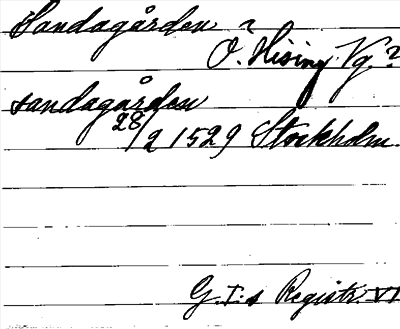 Sandagården ?
Ö. Hising Vg.?
sandagården
28/2 1529 Stockholm.
G. I:s Registr. VI